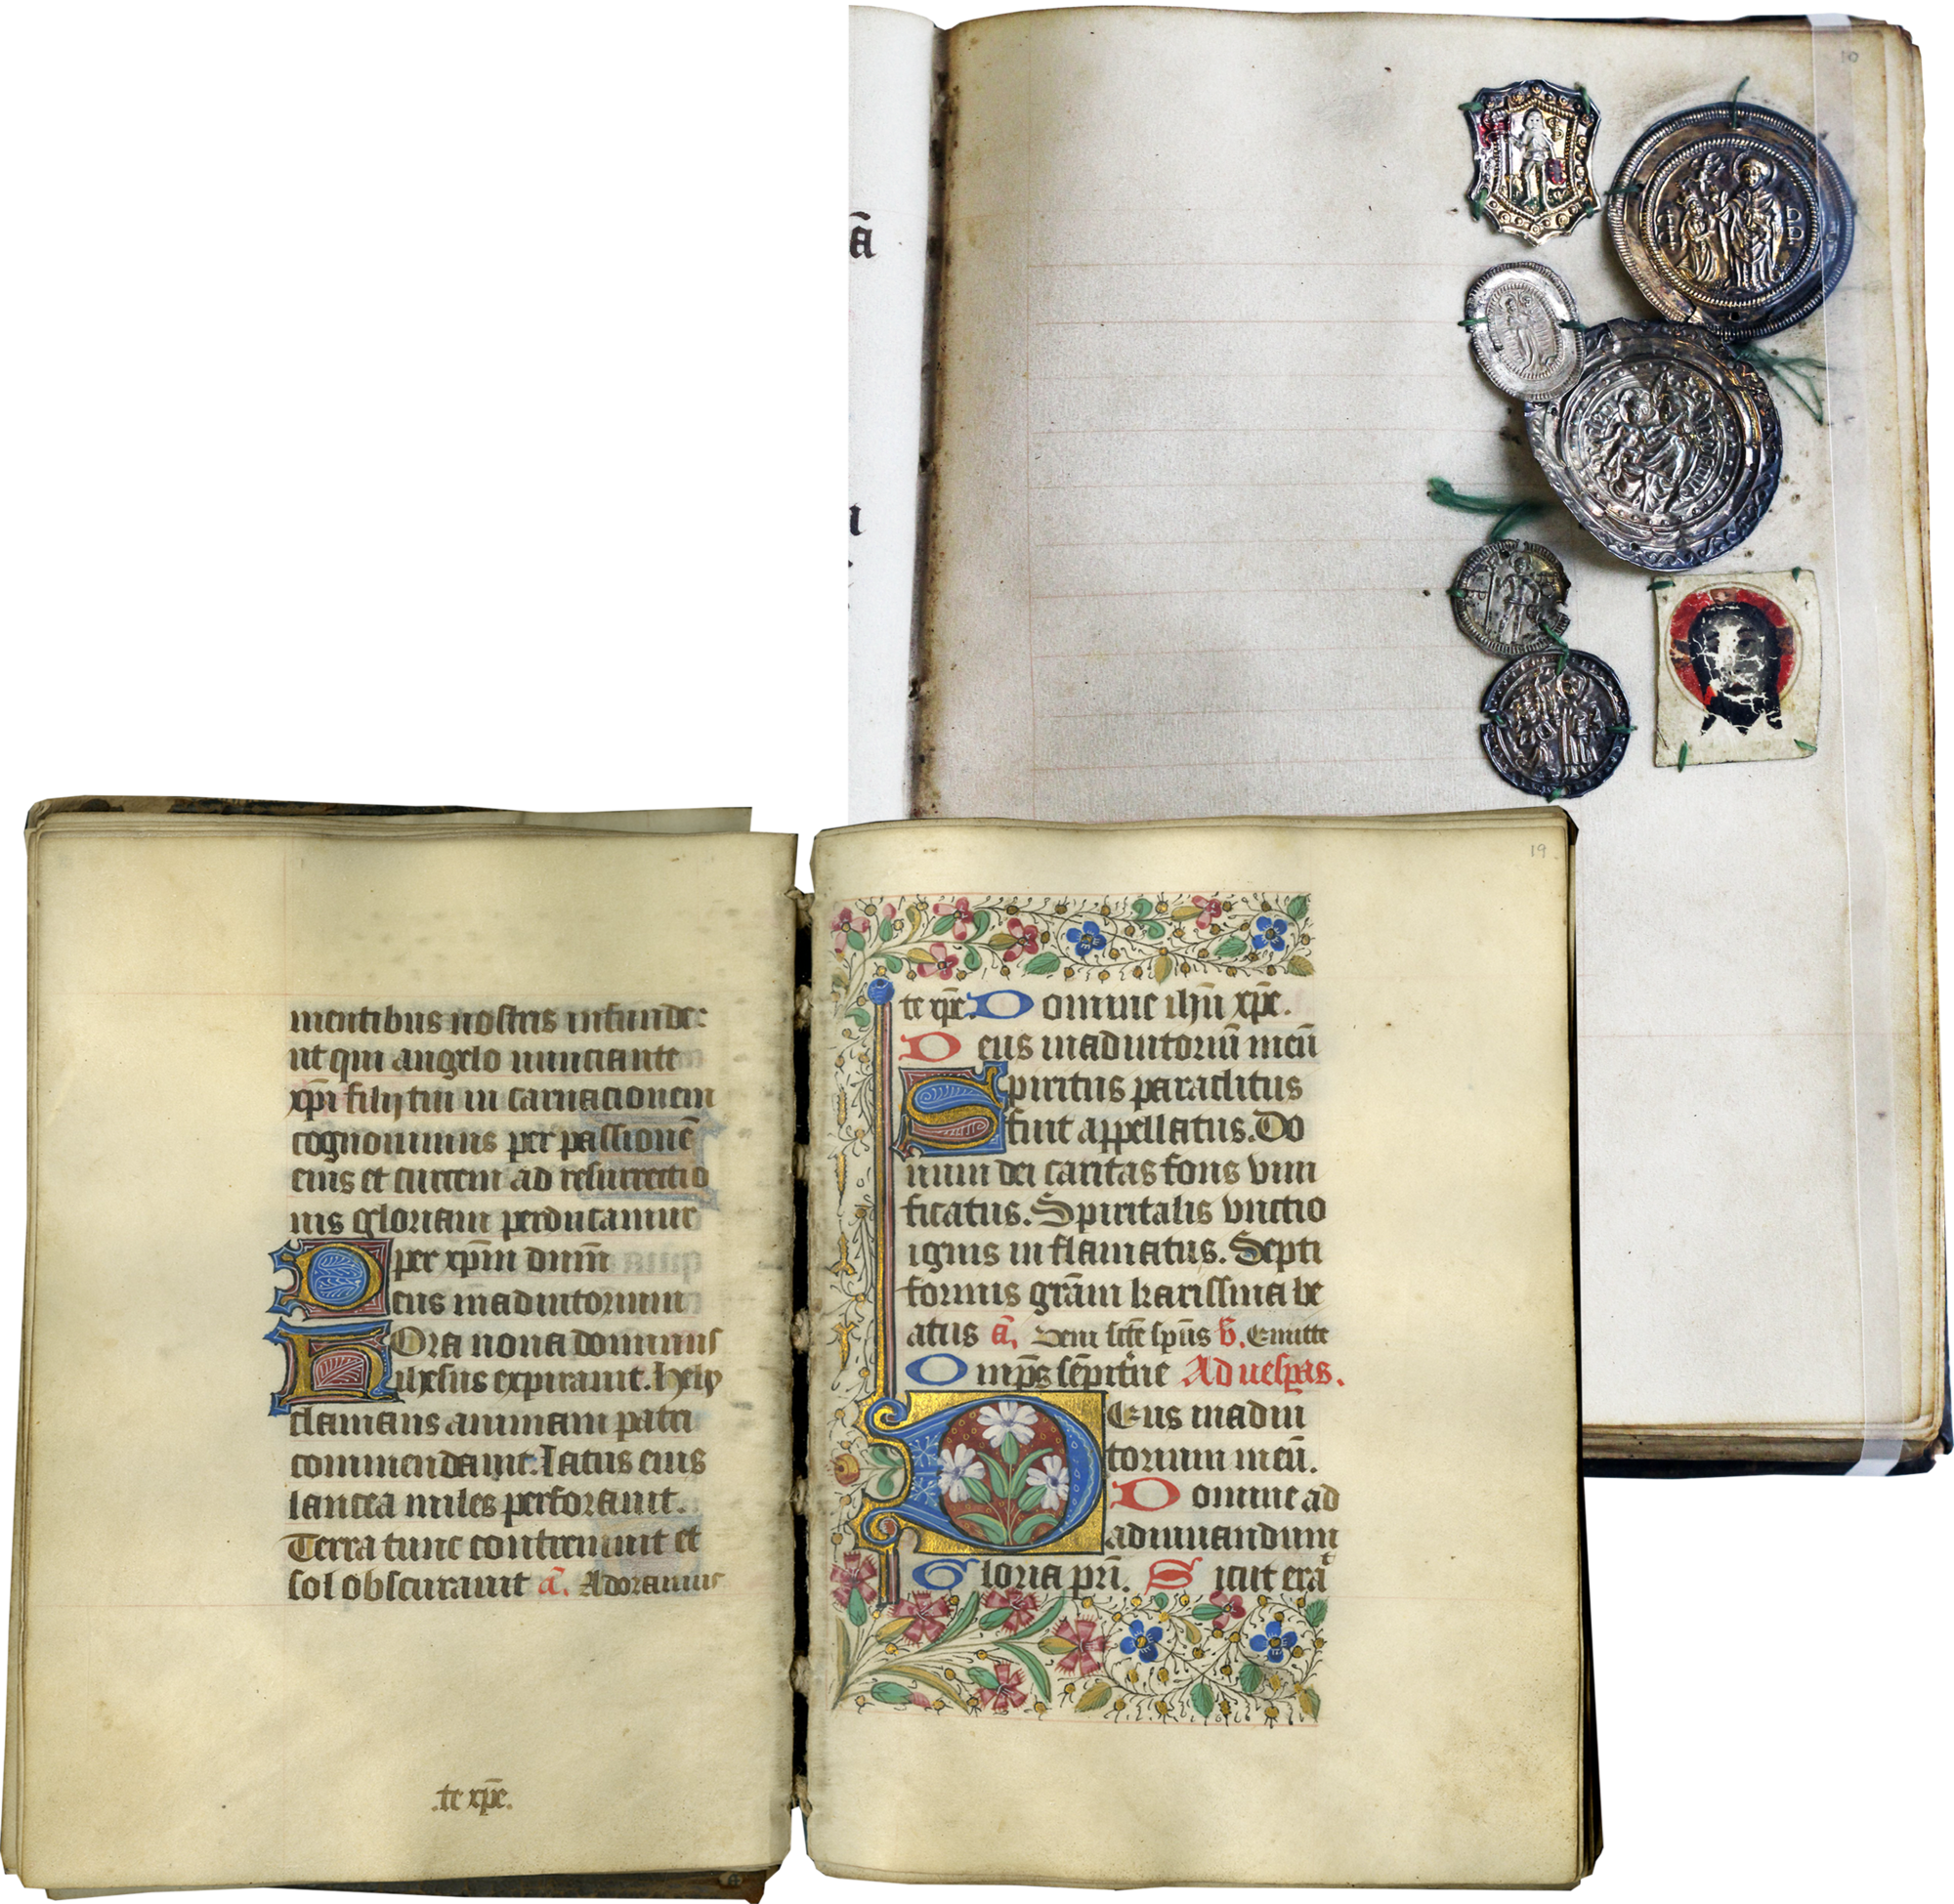 10
ā
mentibus nostris infunde:
ut qui angelo nunciante
xp̄i filij tui in carnacionem
cognouimus per passionē
eius et crucem ad resurrectio
nis gloriam perducamur
per xp̄m dn̄m
Deus in adiutorium
Hora nona dominus
ihesus expirauit. Hely
clamans animam patri
commendauit. Latus eius
lancea miles perforauit.
Terra tunc contremuit et
sol obscurauit ā. Adoramus
.te xp̄e.
19
te xp̄e. Domine ihū xp̄e.
Deus in adiutoriū meū
Spiritus paraclitus
fuit appellatus. Do
num dei caritas fons viui
ficatus. Spiritalis vnctio
ignis inflamatus. Septi
formis grām karissima be
atus ā. Veni scē spūs v̄. Emitte
Omp̄s sēpitne Ad uesp̄as.
Deus in adiu
torium meū.
Domine ad
adiuuandum
Gloria pr̄i. Sicut erat